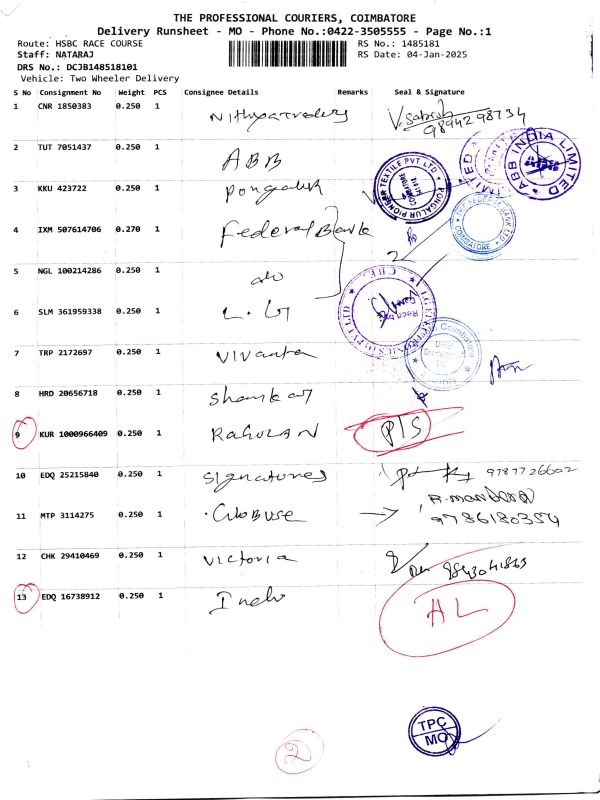 THE PROFESSIONAL COURIERS, COIMBATORE
Delivery Runsheet - MO - Phone No.:0422-3505555 - Page No.:1
Route: HSBC RACE COURSE RS No.: 1485181
Staff: NATARAJ RS Date: 04-Jan-2025
DRS No.: DCJB148518101
Vehicle: Two Wheeler Delivery
S No Consignment No Weight PCS Consignee Details Remarks Seal & Signature
1 CNR 1850383 0.250 1 Nithyatraders
9894298734
2 TUT 7051437 0.250 1 ABB
ABB INDIA LIMITED
3 KKU 423722 0.250 1 Pongalur
PONGALUR PIONEER TEXTILE PVT LTD
COIMBATORE
4 IXM 507614706 0.270 1 Federal Bank
THE FEDERAL BANK LTD
COIMBATORE
5 NGL 100214286 0.250 1 do
6 SLM 361959338 0.250 1 L.G
7 TRP 2172697 0.250 1 Vivanta
Coimbatore
8 HRD 20656718 0.250 1 Shankar
9 KUR 1000966409 0.250 1 RAGULAN P/S
10 EDQ 25215840 0.250 1 Signatures 9787726602
11 MTP 3114275 0.250 1 → 9786180354
12 CHK 29410469 0.250 1 Victoria 9843041863
13 EDQ 16738912 0.250 1 HL
TPC
MO
2